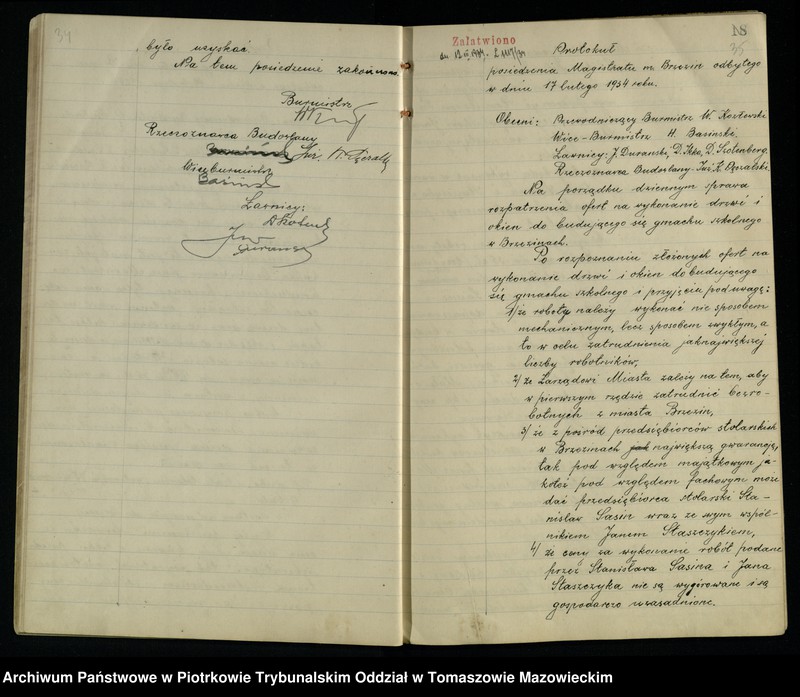 34
było uzyskać.
Na tem posiedzenie zakończono.
Burmistrz
Rzeczoznawca Budowlany
Wiceburmistrz
Ławnicy:
Załatwiono
18
35
Protokuł
posiedzenia Magistratu m. Brzezin odbytego
w dniu 17 lutego 1934 roku.
Obecni: Przewodniczący Burmistrz W. Kozłowski
Wice-Burmistrz H. Basinski.
Ławnicy: J. Durański, D. Ikka, D. Szotenberg.
Rzeczoznawca Budowlany Inż. K.
Na porządku dziennym sprawa
rozpatrzenia ofert na wykonanie drzwi i
okien do budującego się gmachu szkolnego
w Brzezinach.
Po rozpoznaniu złożonych ofert na
wykonanie drzwi i okien do budującego
się gmachu szkolnego i przyjęciu pod uwagę:
1/ że roboty należy wykonać nie sposobem
mechanicznym, lecz sposobem zwykłym, a
to w celu zatrudnienia jaknajwiększej
liczby robotników,
2/ że Zarządowi Miasta zależy na tem, aby
w pierwszym rzędzie zatrudnić bezro-
botnych z miasta Brzezin,
3/ że z pośród przedsiębiorców stolarskich
w Brzezinach największą gwarancję,
tak pod względem majątkowym ja-
koteż pod względem fachowym może
dać przedsiębiorca stolarski Sta-
nisław Sasin wraz ze swym wspól-
nikiem Janem Staszczykiem,
4/ że ceny za wykonanie robót podane
przez Stanisława Sasina i Jana
Staszczyka nie są wygórowane i są
gospodarczo uzasadnione.
Archiwum Państwowe w Piotrkowie Trybunalskim Oddział w Tomaszowie Mazowieckim